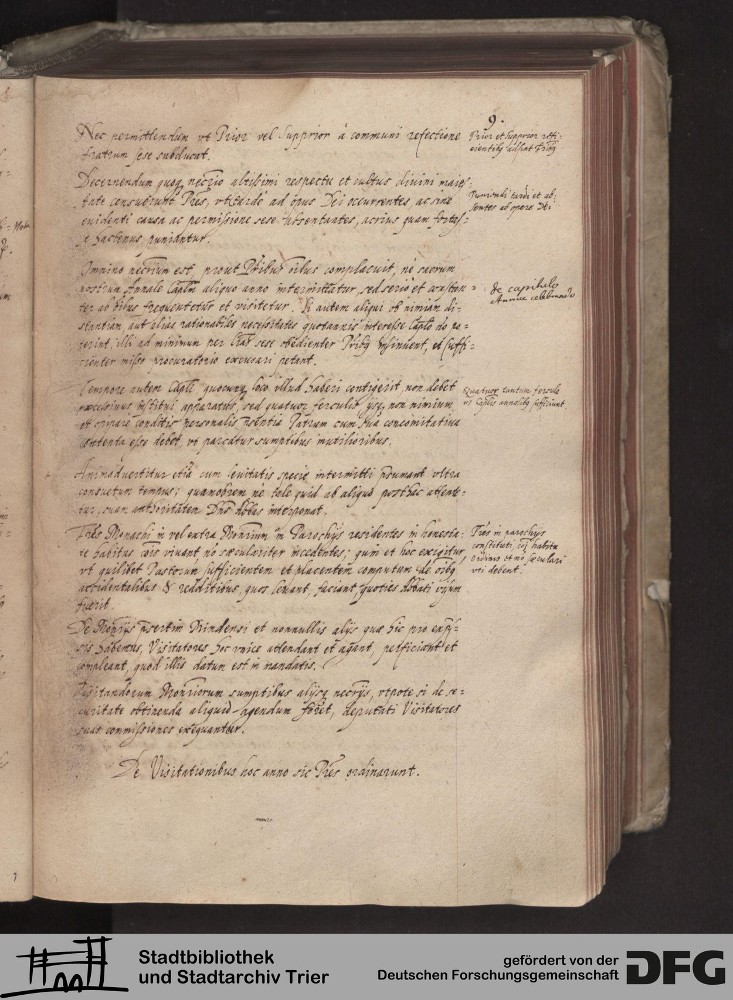 9.
Nec permittendum vt Prior vel Supprior à communi refectione
fratrum sese subducat.
Prior et supprior refi-
cientibus adsint Fribus
Decernendum quoq necrio altissimi respectu et cultus diuini maies-
tate consuerunt Pres, vt tardè ad opus Dei occurrentes, ac sine
euidenti causa ac permissione sese absentantes, acrius quam
hactenus, puniantur.
Puniendi tardi et ab-
sentes ab opere Dei
Omnino necrium est, prout Pribus oibus complacuit, ne sacrum
nostrum Annale Caplm aliquo anno intermittatur, sed seriò et constan-
ter ab oibus frequentetur et visitetur. Si autem aliqui ob nimiam di-
stantiam aut alias rationabiles necessitates quotannis interesse Caplo non po-
terint, illi ad minimum per lras sese obedienter Pribus insinuent, et suffi-
cienter misso procuratorio excusari petant.
de capitulo
Annue celebrando
Tempore autem Capli quocunq loco illud haberi contigerit non debet
institui apparatus, sed quatuor ferculis ijsq non nimium
conditis personalis pńtia Patrum cum sua concomitatiua
contenta esse debet, vt parcatur sumptibus inutilioribus.
Quatuor tantum fercula
in Caplis annalibq sufficiunt
Animaduertitur etiã cum leuitatis specie intermitti vltra
consuetum tempus; quamobrem ne tale quid ab aliquo posthac attente-
tur, suam authoritatem Dni Abbes interponat.
Fres Monachi in vel extra Monrium in Parochijs residentes in honesta-
te habitus viuant, nõ sæculariter incedentes; quin et hoc exigitur
vt quilibet Pastorum sufficientem et placentem computum de oibq
accidentalibus & redditibus, quos leuant, faciant, quoties Abbati visum
fuerit.
Fres in parochijs
constituti, habitu
ordinis et nõ sæculari
vti debent.
De Monrijs psertim Mindensi et nonnullis alijs quæ hic pro
habemus, Visitatores hoc vnice attendant et agant, perficiant et
compleant, quod illis datum est in mandatis.
Visitandorum Monriorum sumptibus alijsq necrijs, vtpote si de se-
curitate obtinenda aliquid agendum foret, deputati Visitatores
suas commissiones exequantur.
De Visitationibus hoc anno sic Pres ordinarunt.
Stadtbibliothek
und Stadtarchiv Trier
gefördert von der
Deutschen Forschungsgemeinschaft
DFG